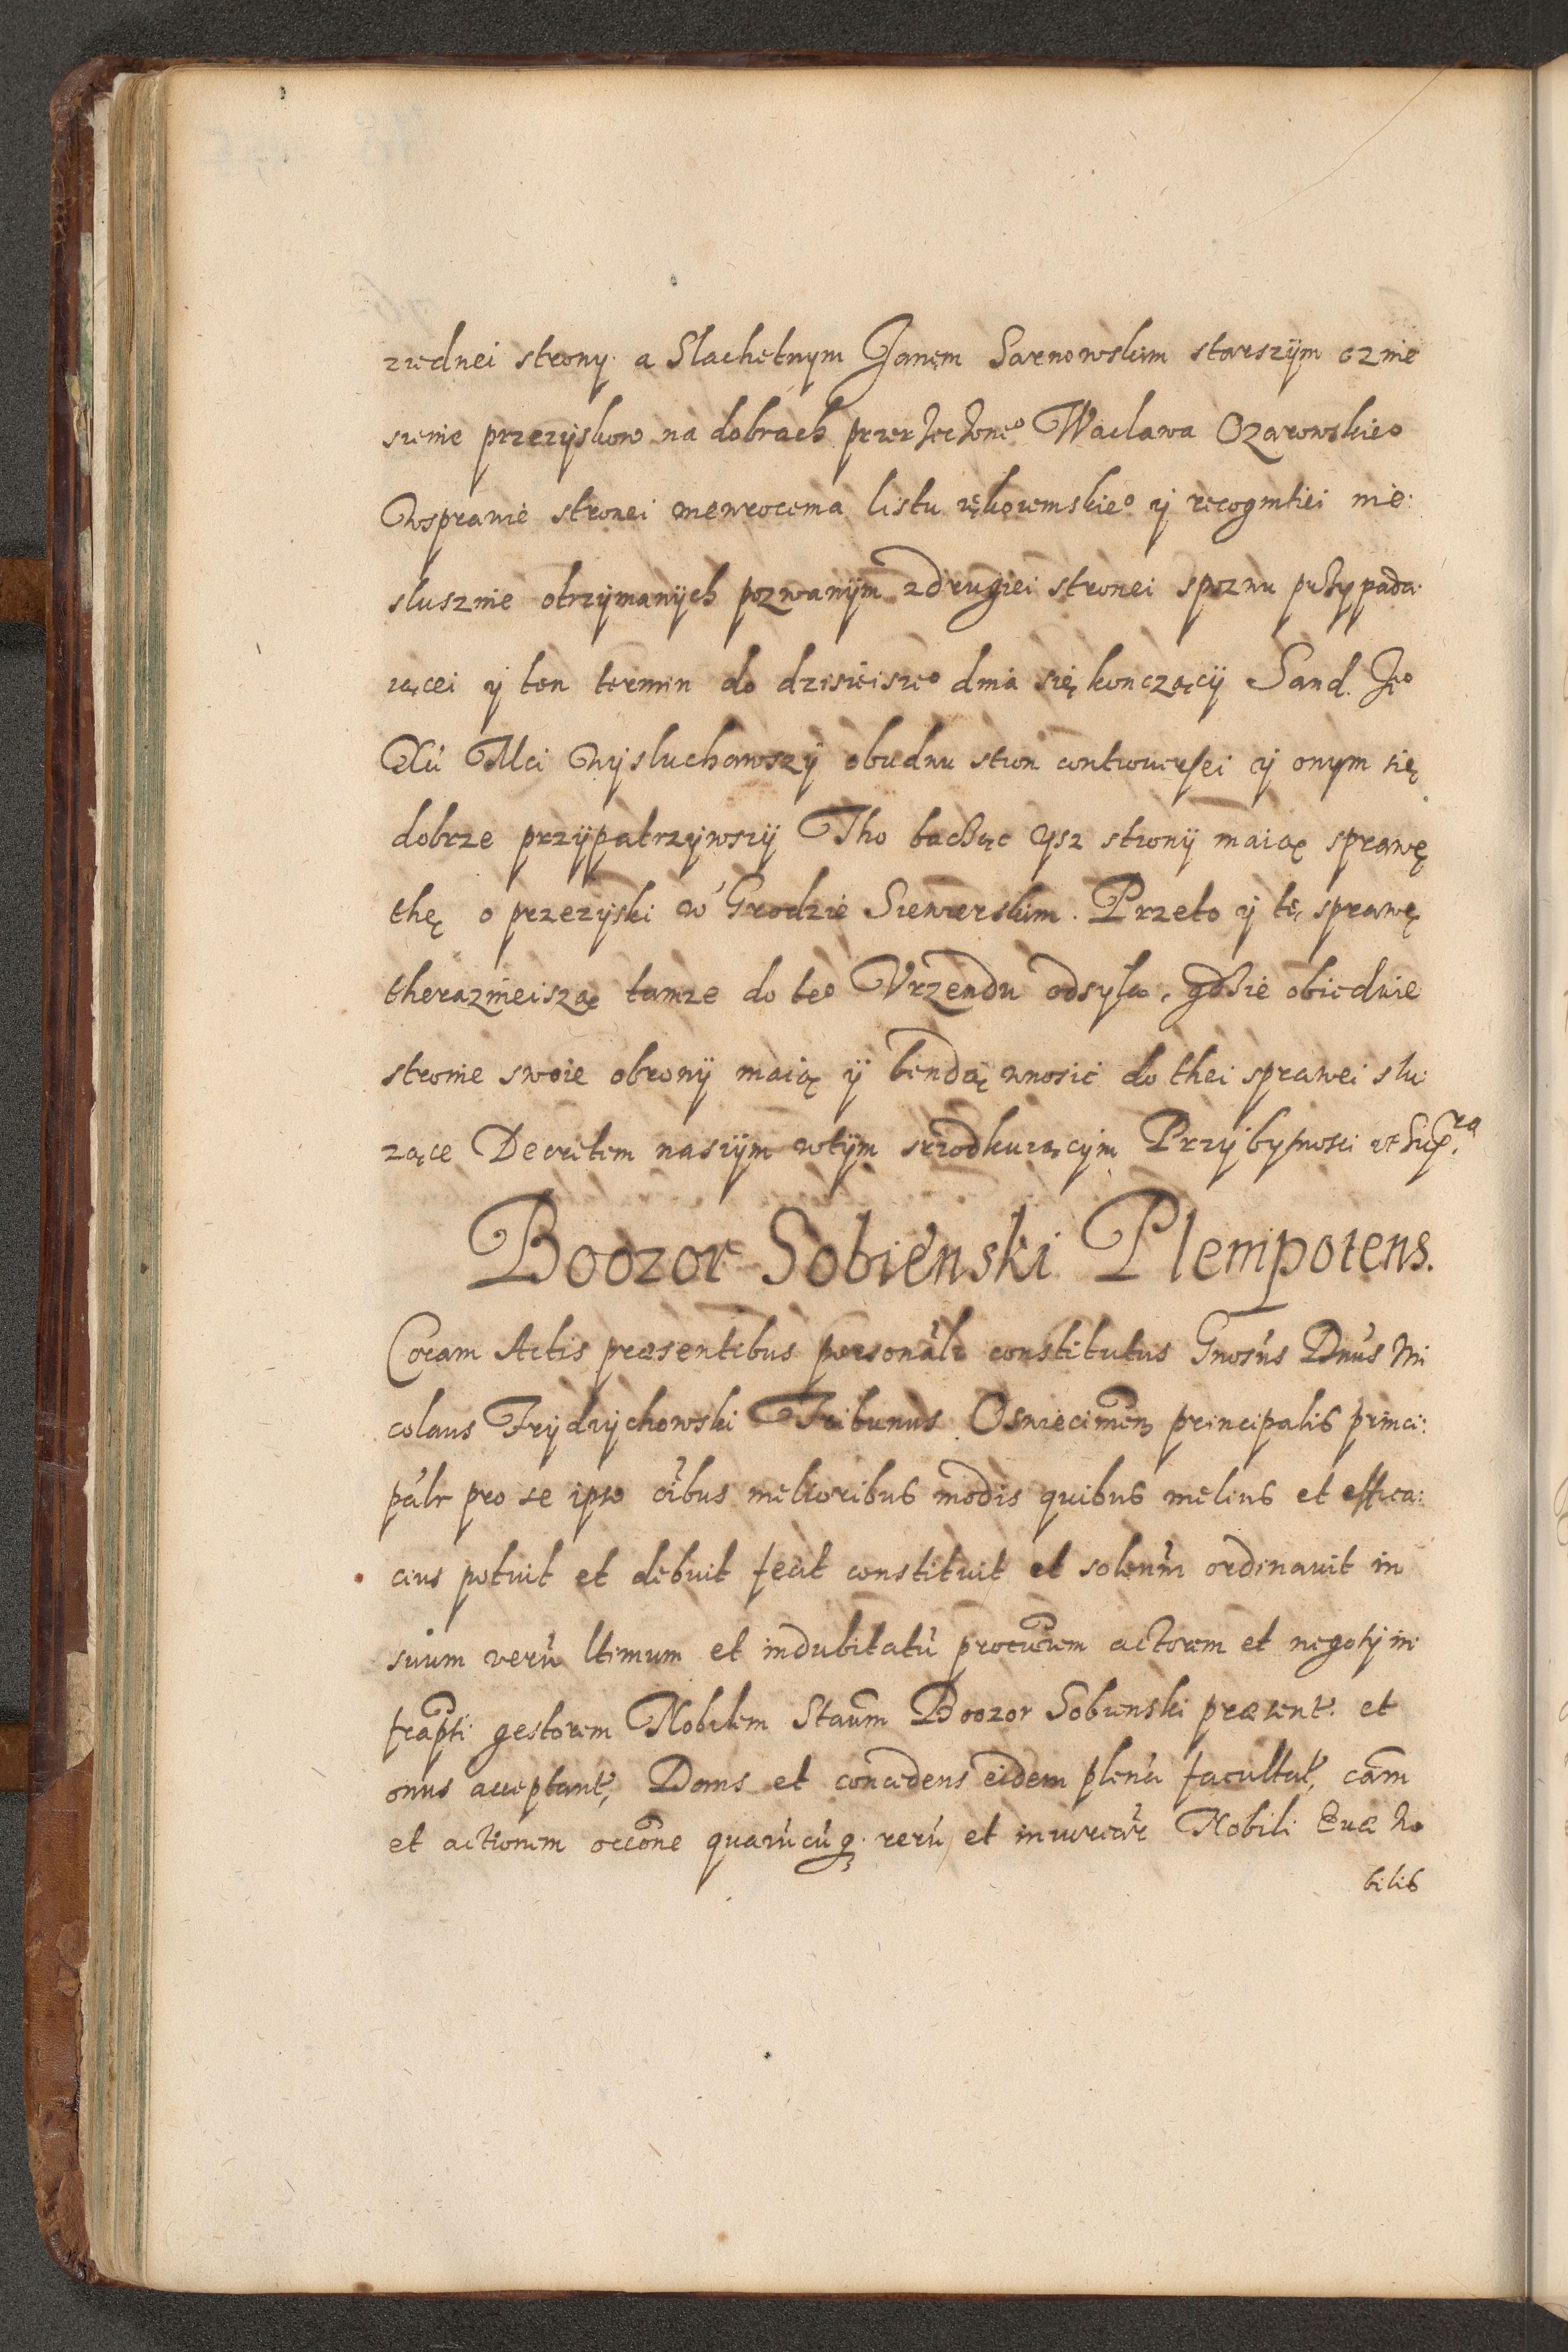 ziednei strony. a Slachetnym Janęm Sarnowskim starszÿm o znie
sienie przezÿskow na dobrach przerzeczone⁰ Waclawa Ozarowskie⁰
Wsprawie stronei niewrocenia listu rękoiemskie⁰ ÿ recognitiei nie:
slusznie otrzÿmanÿch pozwanÿm zdrugiei stronei spozwu przÿpada:
iącei ÿ ten termin do dzisieisze⁰ dnia się konczącÿ Sand. Je⁰
Xii Mci Wÿsluchawszÿ obudwu stron controversei ÿ onym się
dobrze przÿpatrzÿwszÿ Tho bacząc ÿsz stronÿ maią sprawę
thę o przezÿski w Grodzie Siewierskim. Przeto ÿ tę sprawę
theraznieiszą tamze do te⁰ Vrzendu odsyla. gdzie obiedwie
stronie swoie obronÿ maią ÿ bendą wnosic do thei sprawei slu:
zące Decretem naszÿm wtÿm srzodkuiącÿm Przÿbÿtnosci vt Sup.ra
Boozor Sobienski Plenipotens.
Coram Actis præsentibus personal̃r constitutus Gnosus Dnus Ni
colaus Frÿdrÿchowski Tribunus Osniecimen principalis princi:
pal̃r pro se ipso oĩbus melioribus modis quibus melius et effica:
cius potuit et debuit fecit constituit et solenm̃ ordinavit in
suum verũ ltimum et indubitatũ procurem actorem et negotÿ in
frapti gestorem Nobilem Staum Boozor Sobienski præsente. et
onus acceptante, Dans et concedens eidem plenã facultate, cam
et actionem occone quarũcũq. rerũ, et iniuriar̃ Nobili Euæ No
bilis